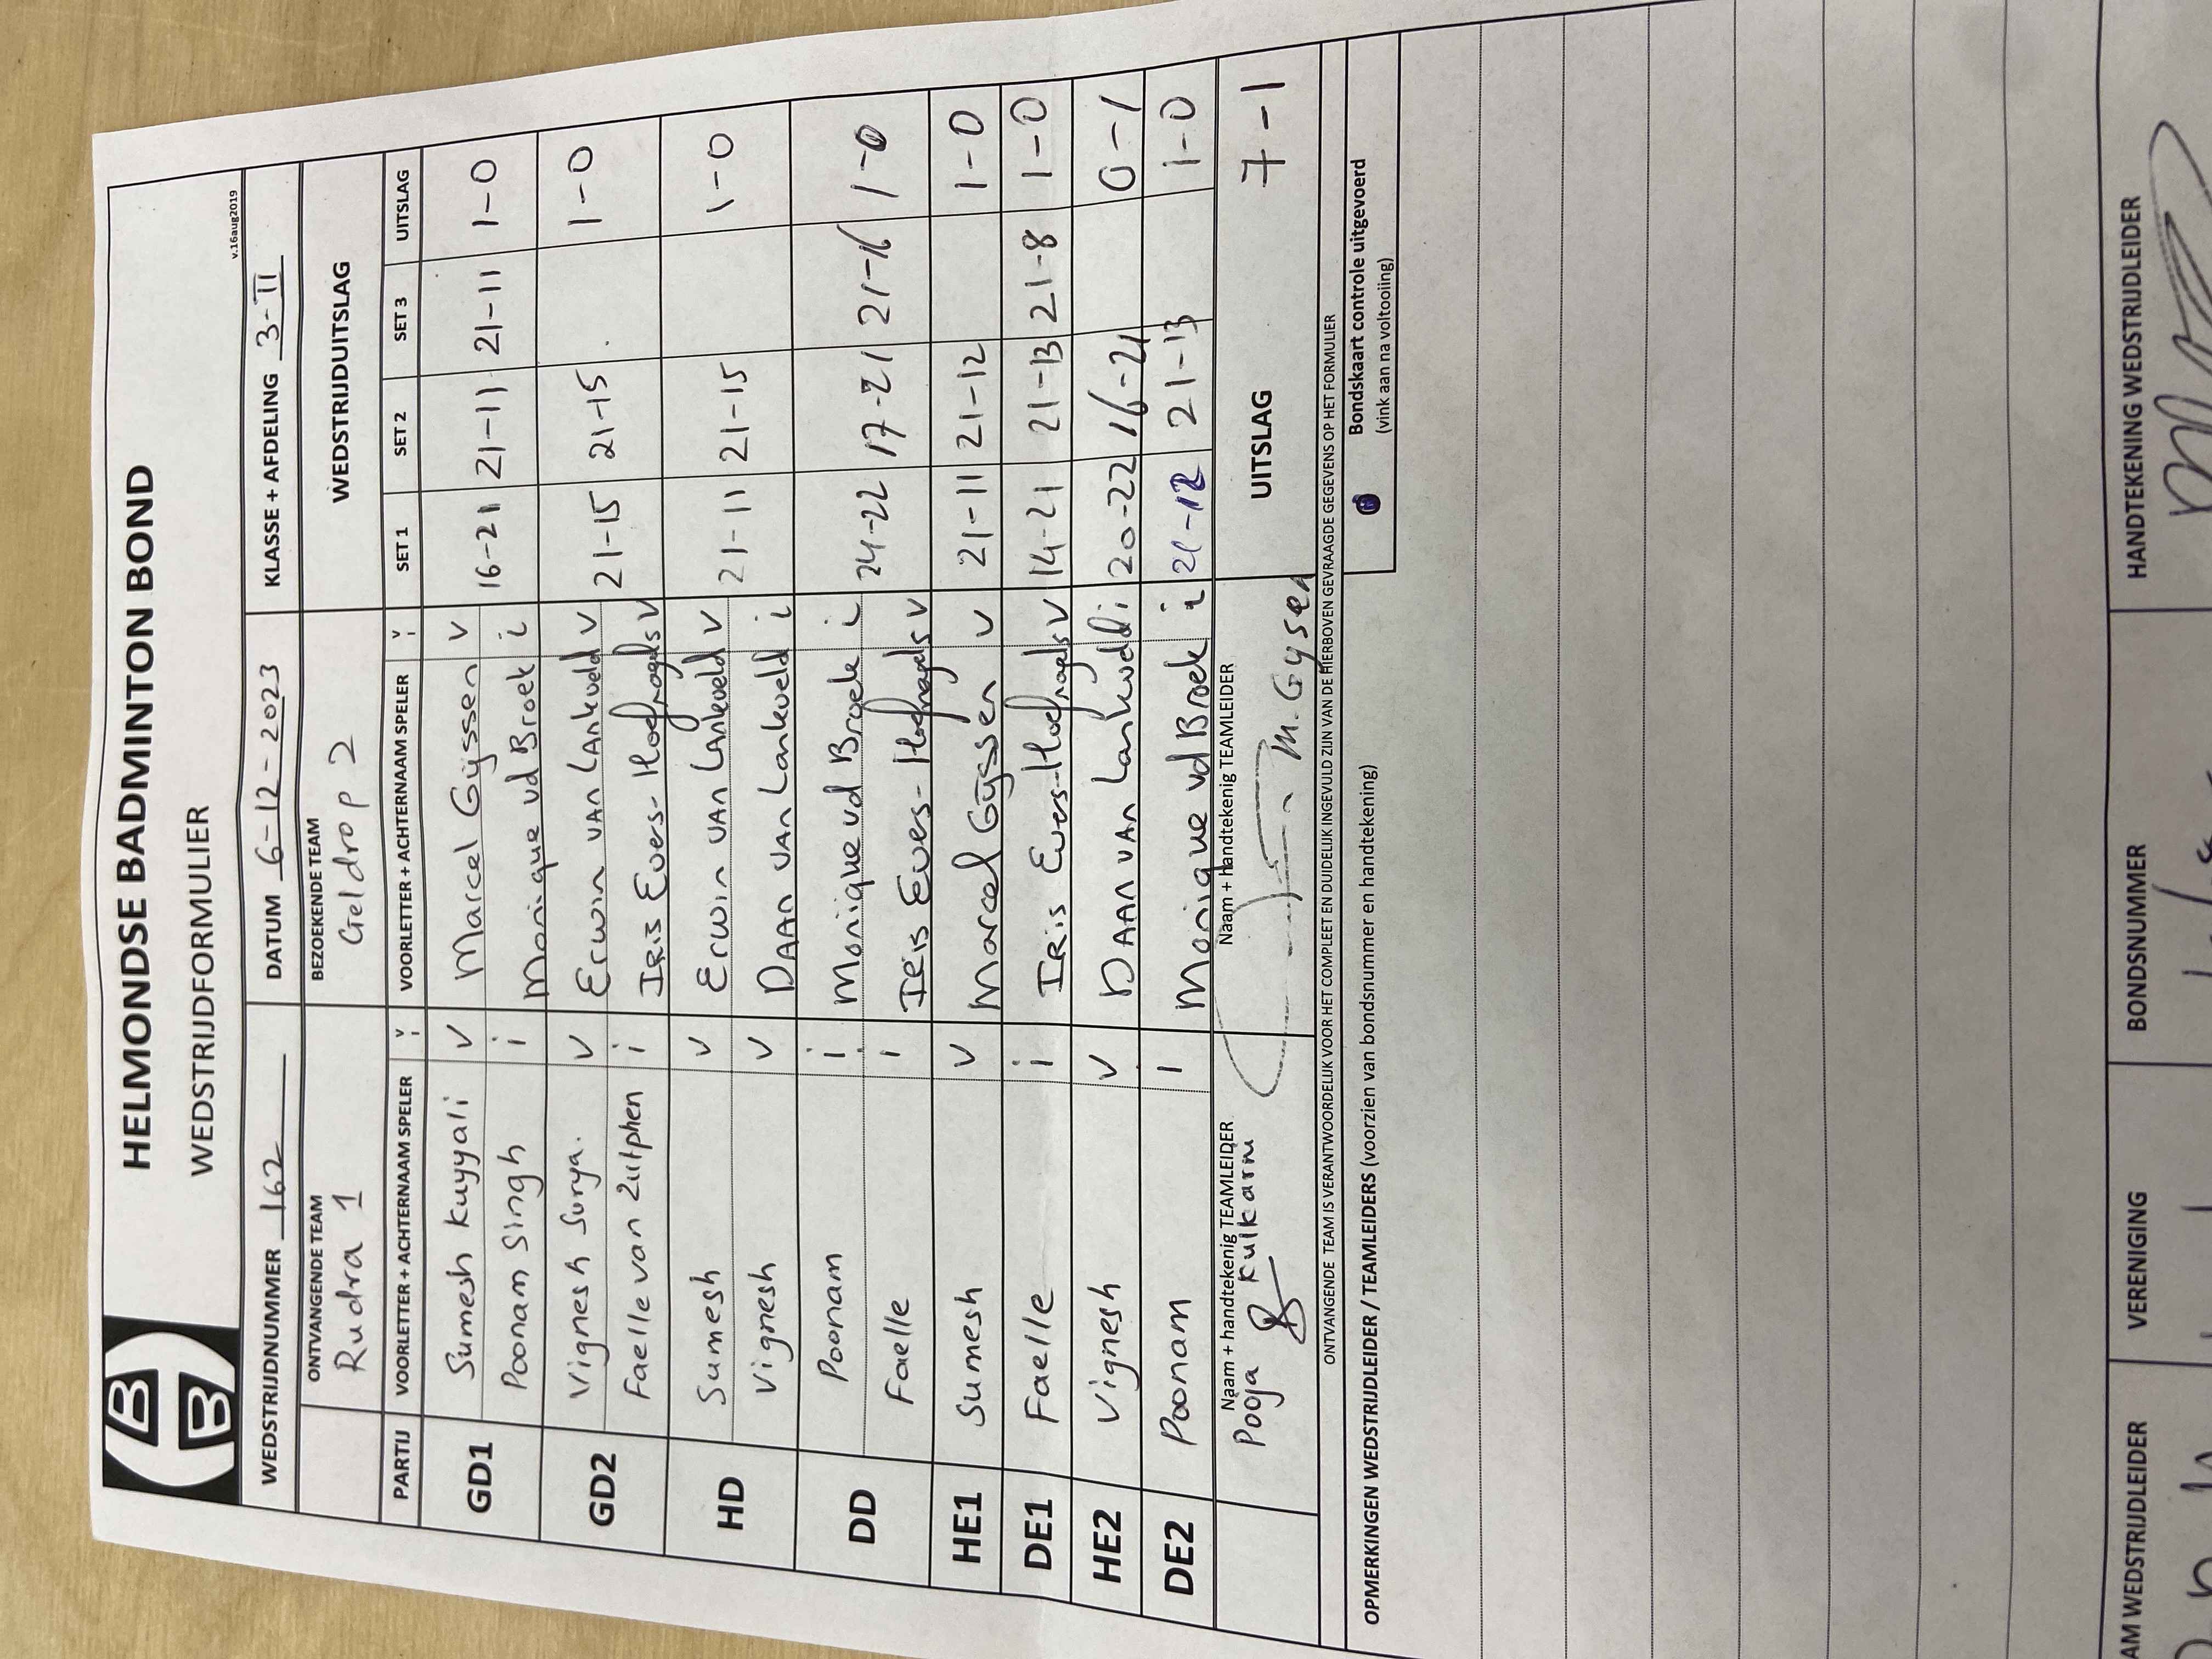 HELMONDSE BADMINTON BOND
WEDSTRIJDFORMULIER
v.16aug2019
WEDSTRIJDNUMMER 162 DATUM 6-12-2023 KLASSE + AFDELING 3-II
ONTVANGENDE TEAM BEZOEKENDE TEAM WEDSTRIJDUITSLAG
Rudra 1 Geldrop 2
PARTIJ VOORLETTER + ACHTERNAAM SPELER V I VOORLETTER + ACHTERNAAM SPELER V I SET 1 SET 2 SET 3 UITSLAG
GD1 Sumesh Kuyyali V Marcel Gijssen V 16-21 21-11 21-11 1-0
Poonam Singh i Monique vd Broek i
GD2 Vignesh Surya. V Erwin van Lankveld V 21-15 21-15 1-0
Faelle van Zutphen i Iris Evers-Hoefnagels V
HD Sumesh V Erwin van Lankveld V 21-11 21-15 1-0
Vignesh V Daan van Lankveld i
DD Poonam i Monique vd Broek i 24-22 17-21 21-16 1-0
Faelle i Iris Evers-Hoefnagels V
HE1 Sumesh V Marcel Gijssen V 21-11 21-12 1-0
DE1 Faelle i Iris Evers-Hoefnagels V 14-21 21-13 21-8 1-0
HE2 Vignesh V Daan van Lankveld i 20-22 16-21 0-1
DE2 Poonam i Monique vd Broek i 21-12 21-13 1-0
Naam + handtekenig TEAMLEIDER Naam + handtekenig TEAMLEIDER UITSLAG 7-1
Pooja Kulkarni M. Gysen
ONTVANGENDE TEAM IS VERANTWOORDELIJK VOOR HET COMPLEET EN DUIDELIJK INGEVULD ZIJN VAN DE HIERBOVEN GEVRAAGDE GEGEVENS OP HET FORMULIER
OPMERKINGEN WEDSTRIJDLEIDER / TEAMLEIDERS (voorzien van bondsnummer en handtekening)
Bondskaart controle uitgevoerd
(vink aan na voltooiing)
AM WEDSTRIJDLEIDER VERENIGING BONDSNUMMER HANDTEKENING WEDSTRIJDLEIDER